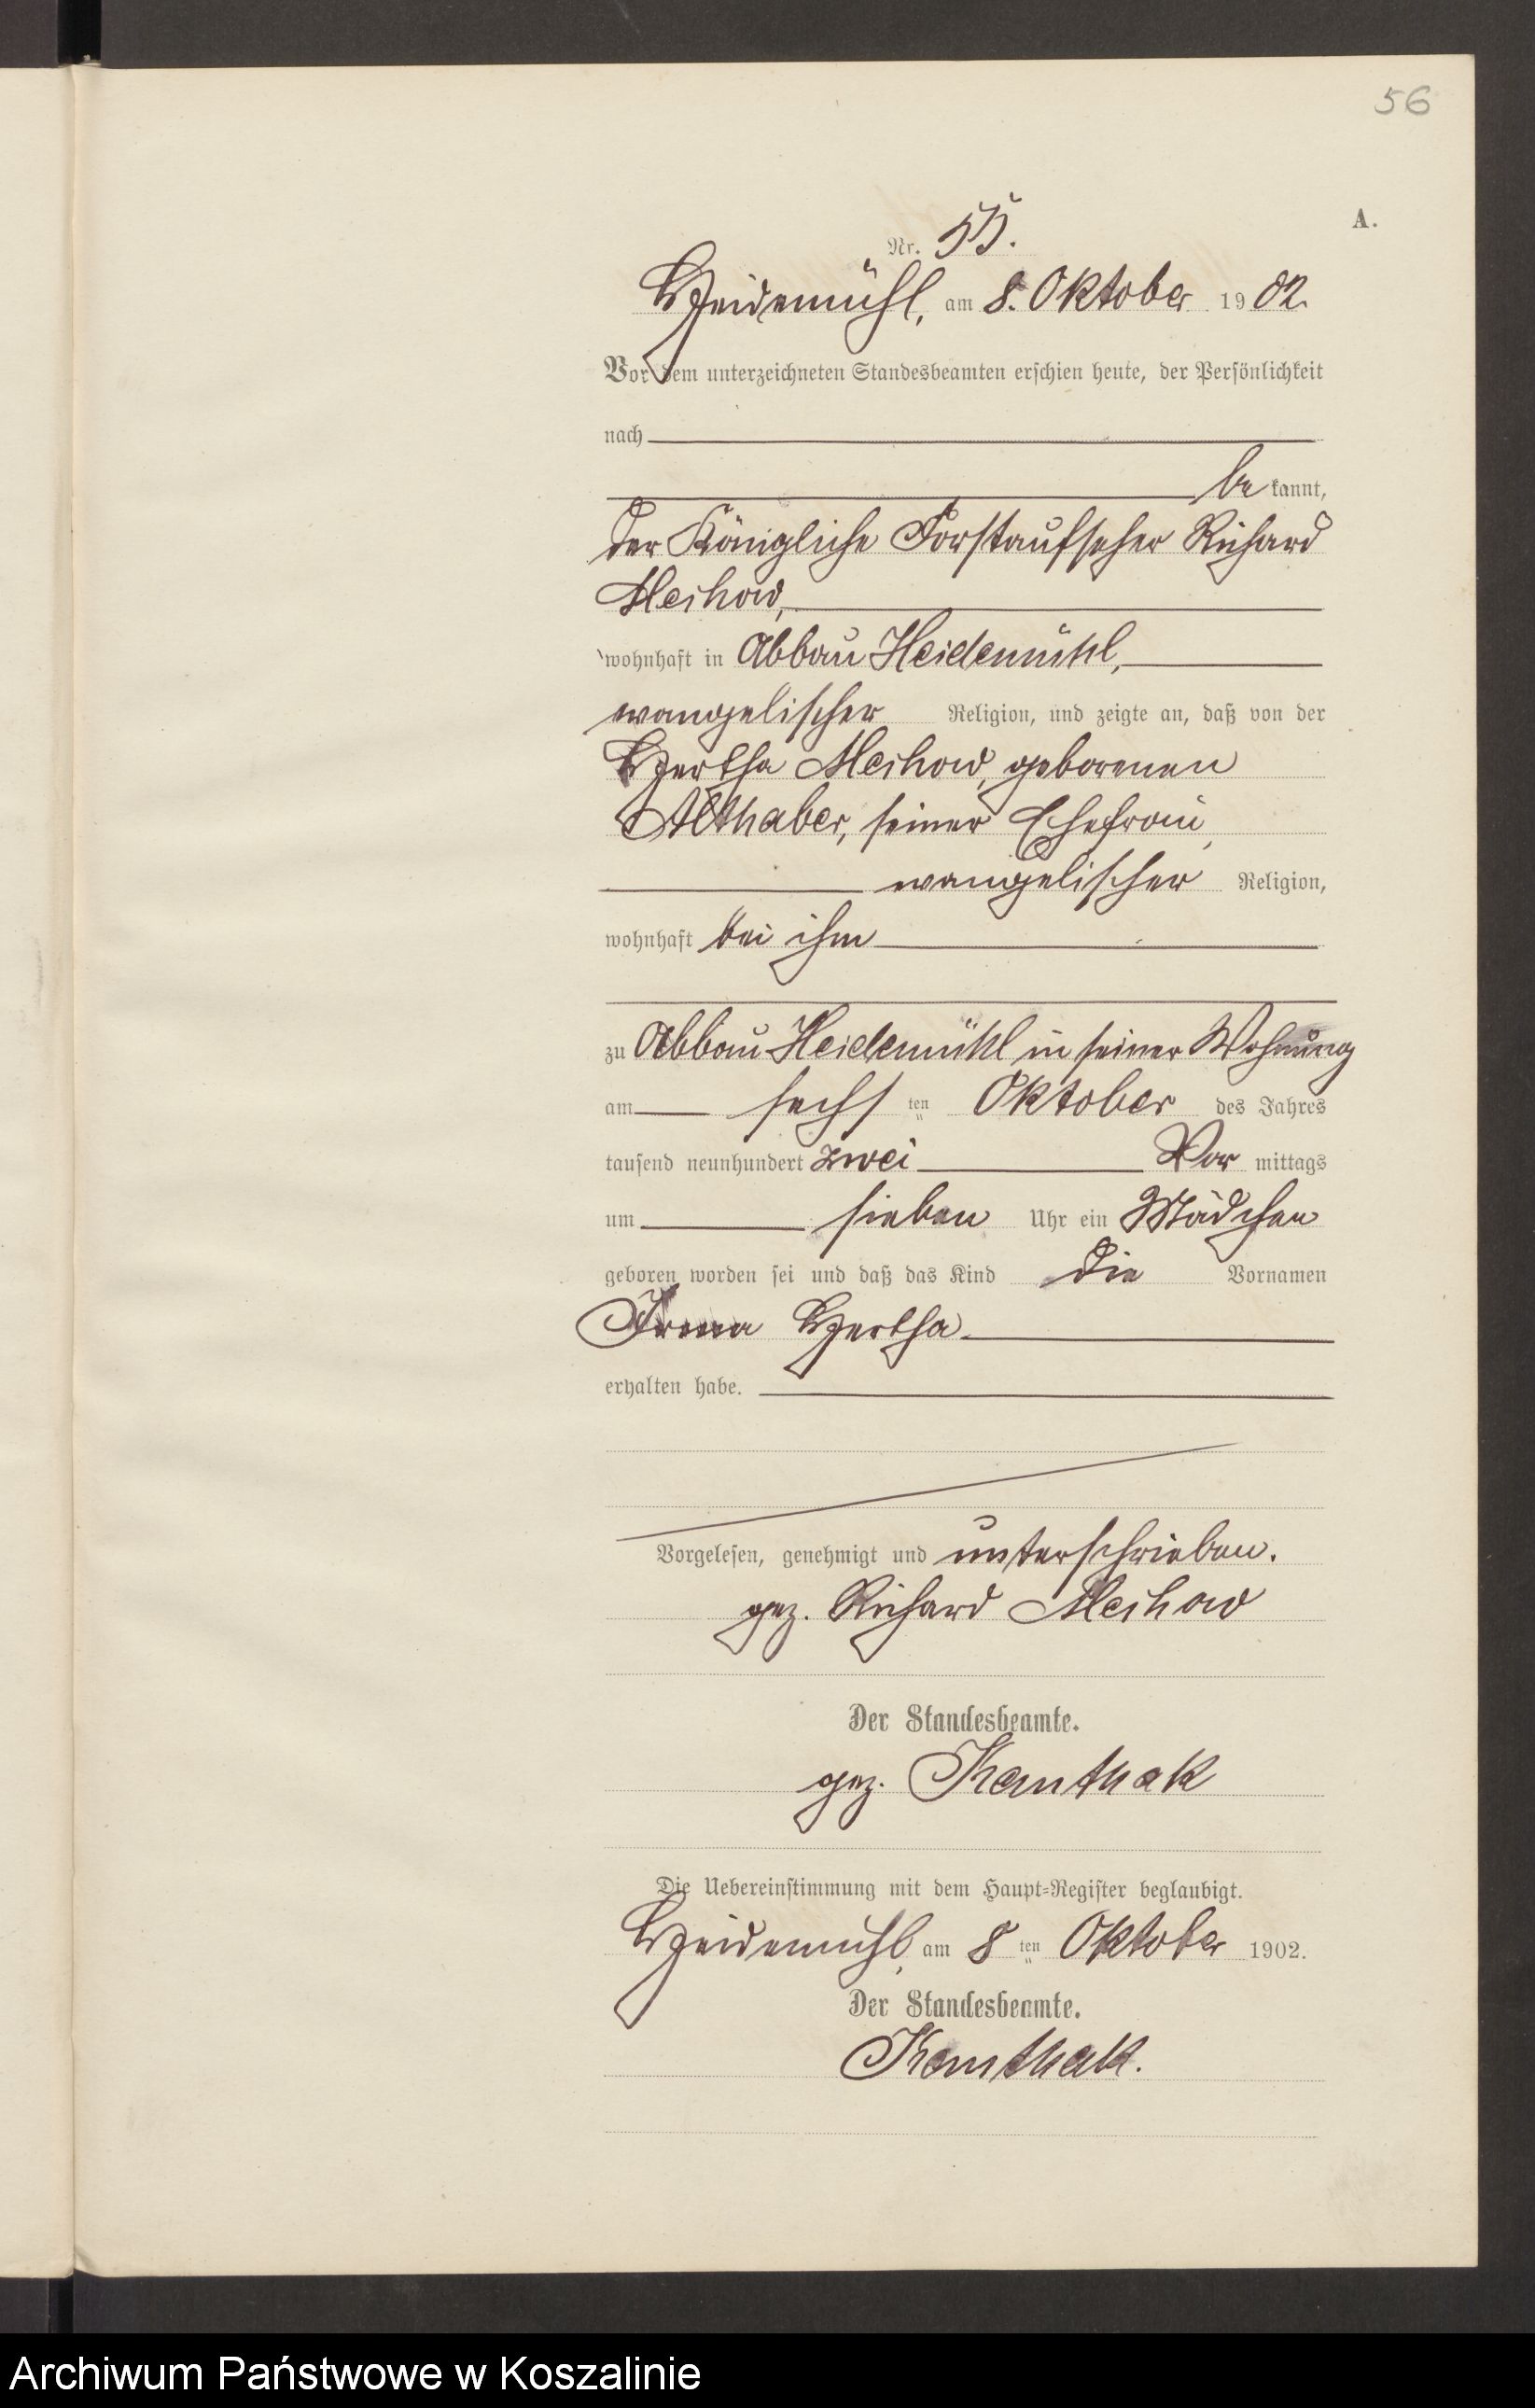 56
A.
Nr. 55.
Heidemühl, am 8. Oktober 1902.
Vor dem unterzeichneten Standesbeamten erschien heute, der Persönlichkeit
nach
be kannt,
der Königliche Forstaufseher Richard
wohnhaft in Abbau Heidemühl,
evangelischer Religion, und zeigte an, daß von der
Hertha geborenen
Althaber, seiner Ehefrau,
evangelischer Religion,
wohnhaft bei ihm
zu Abbau Heidemühl in seiner Wohnung
am sechs ten Oktober des Jahres
tausend neunhundert zwei Vor mittags
um sieben Uhr ein Mädchen
geboren worden sei und daß das Kind die Vornamen
Hertha
erhalten habe.
Vorgelesen, genehmigt und unterschrieben.
gez. Richard
Der Standesbeamte.
gez. Kanthak
Die Uebereinstimmung mit dem Haupt-Register beglaubigt.
Heidemühl, am 8 ten Oktober 1902.
Der Standesbeamte.
Kanthak.
Archiwum Państwowe w Koszalinie